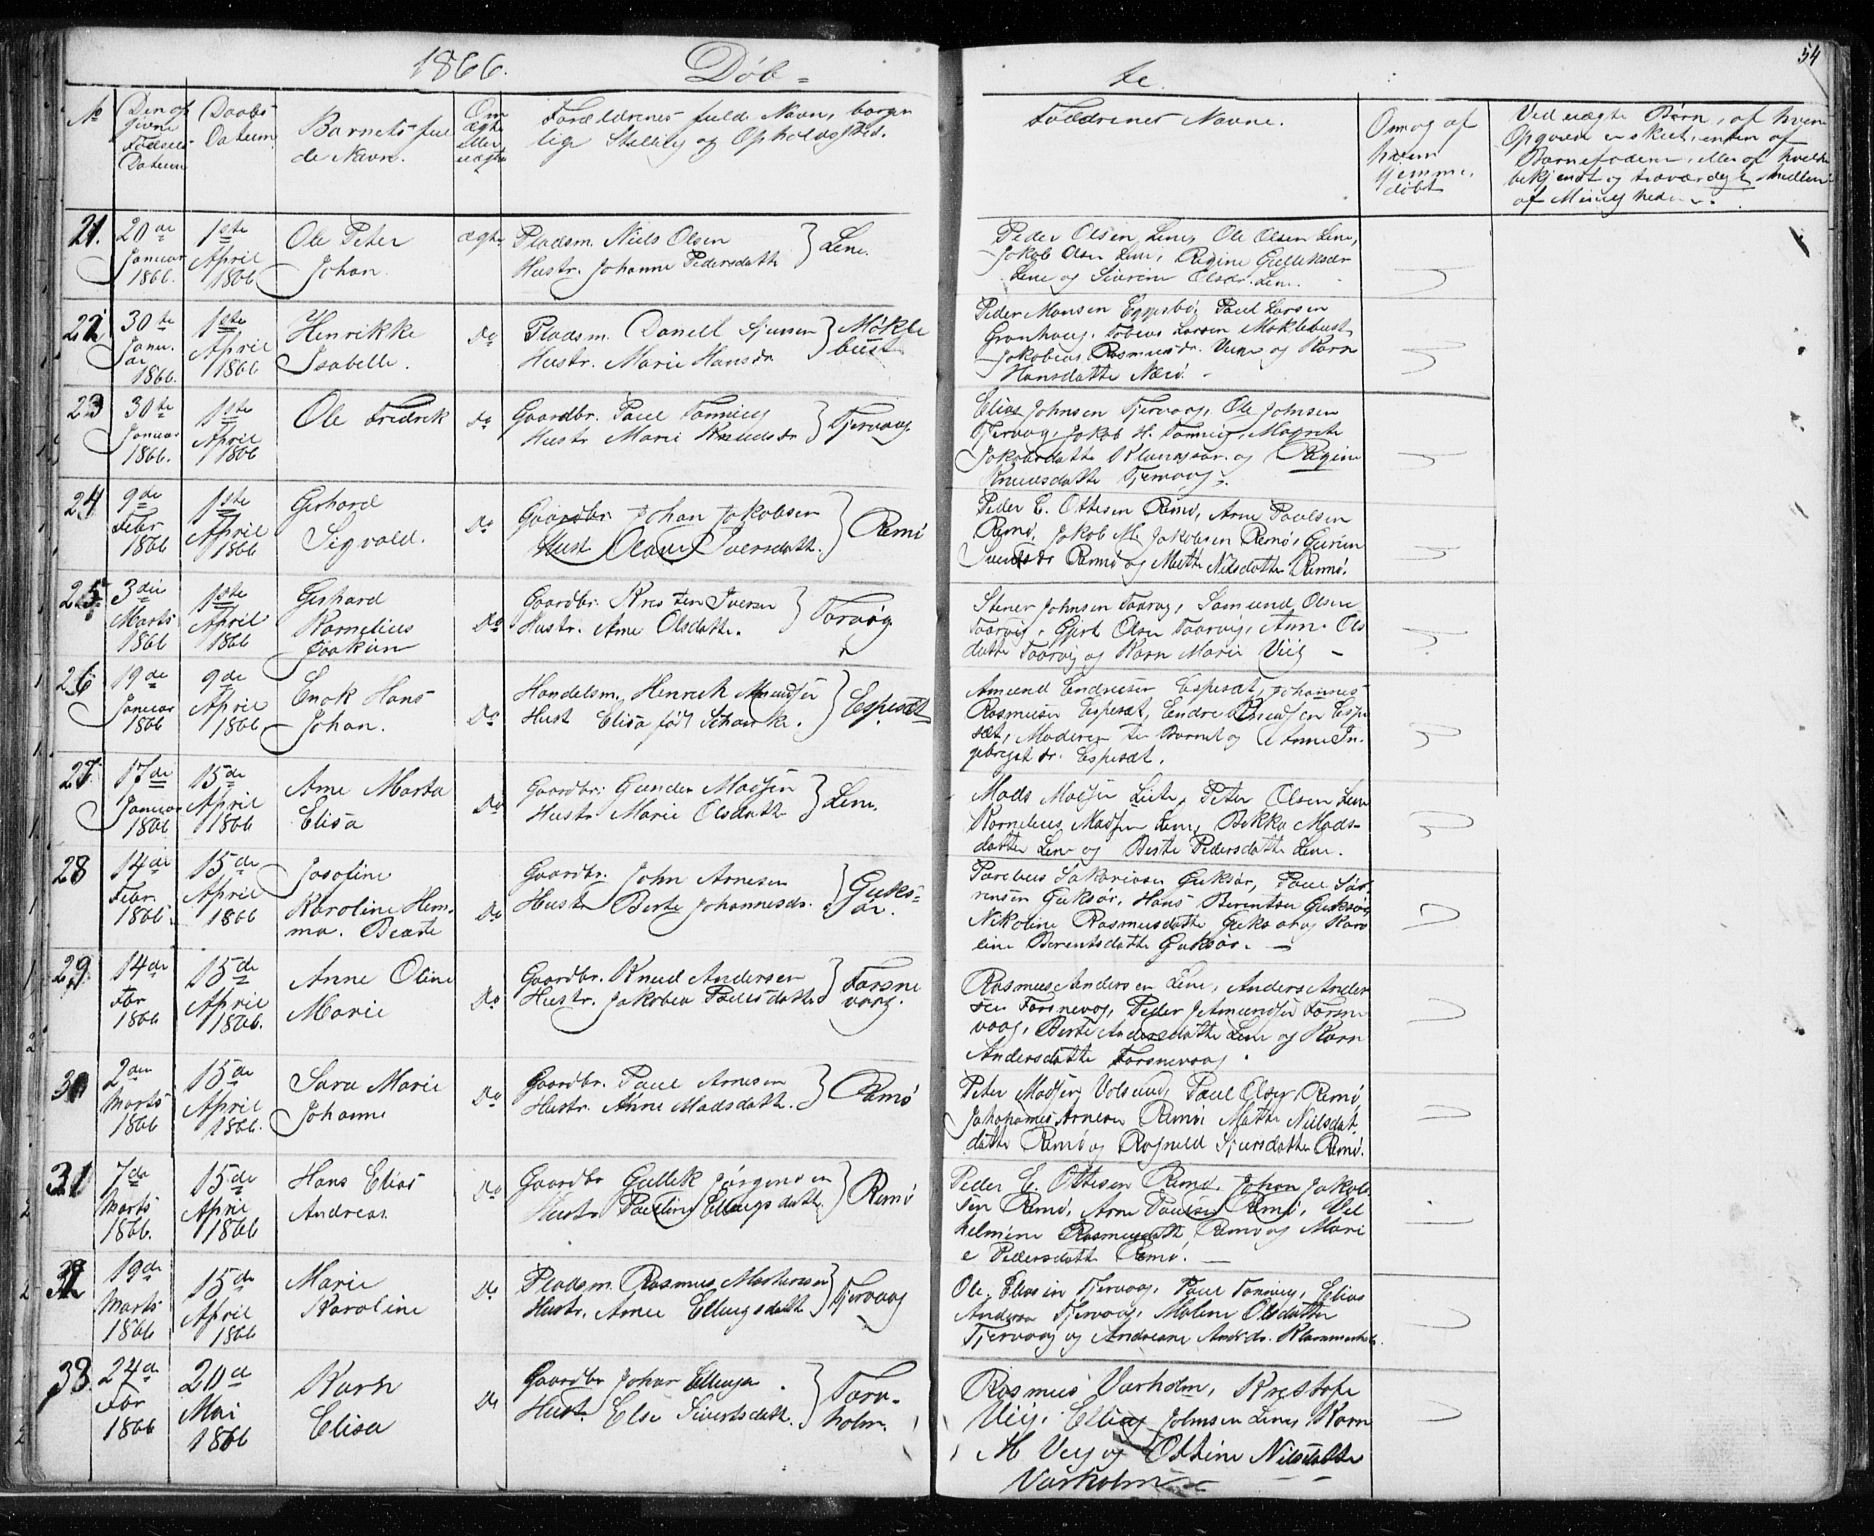 1866. Døb=
te.
54
No
Den op
givne
Fødsels
Datum
Daabs
Datum
Barnets ful
de Navn.
Om
ægte
eller
uægte
Forældrenes fulde Navn, borger
lige Stilling og Opholdssted.
Faddrenes Navne.
Om og af
hvem
hjemme
døbt
Ved uægte Børn, af hvem
Opgaven er skeet, enten af
Barnefaderen, eller af hvilke
bekjendt og troværdigt Medlem
af Menigheden.
21. 20de Januar 1866. 1ste April 1866 Ole Peter Johan. ægte
Pladsm. Niels Olsen
Hustr. Johanne Pedersdatte } Lene.
Peder Olsen Lene, Ole Olsen Lene,
Jakob Olsen Lene, Regine Gulliksdr
Lene og Severine Olsdr. Lene.
22 30te Janu. ar 1866. 1ste April 1866 Henrikke Isabelle. Do
Pladsm. Daniel Sjursen
Hustr. Marie Hansdr } Møkle bust
Peder Monsen Eggesbø, Paul Larsen
Grønhaug, Tobias Larsen Møklebust
Jakobea Rasmusdr. og Karn
Hansdatte Nærø.
23 30te Januar 1866. 1ste April 1866 Ole Fredrik Do
Gaardbr. Paul Tonning
Hustr. Marie Knudsdr } Tjervaag
Elias Johnsen Tjervaag, Ole Johnsen
Tjervaag, Jakob H. Tonning, Magrete
Jakobsdatte og Regine
Knudsdatte Tjervaag.
24 9de Febr 1866 1ste April 1866 Gerhard Sigvald. Do
Gaardbr. Johan Jakobsen
Hust Olave Iversdatte. } Remø
Peder E. Ottesen Remø, Arne Paulsen
Remø, Jakob M. Jakobsen Remø, Gurine
Remø og Mette Nilsdatte Remø.
25 3die Marts 1866 1ste April 1866 Gerhard Kornelius Joakim Do
Gaardbr. Kresten Iversen
Hustr. Ane Olsdatte. } Torvig
Stener Johnsen Taarvig, Samund Olsen
Taarvig, Gjert Olsen Taarvig, Ann. Ols
datte Taarvig og Karn Marie Viig
26 19de Januar 1866 9de April 1866 Enok Hans Johan. Do
Handelsm. Henrik Amundsen
Hust Elisa fød Schanke. } Espesæt
Amund Endresen Espesæt, Johannes
Rasmusen Espesæt, Endre Amundsen Espe
sæt, Moderen til Barnet og Anne In
gebrigst dr. Espesæt.
27 17de Januar 1866 15de April 1866 Ane Marta Elisa Do
Gaardbr. Gunder Madsen
Hustr. Marie Olsdatte } Lene.
Mads Madsen Leite, Peter Olsen Lene
Kornelius Madsen Lene, Bekka Mads-
datte Lene og Berte Pedersdatte Lene.
28 14de Febr. 1866. 15de April 1866 Josefine Karoline Hem- ma. Beate Do
Gaardbr. John Arnesen
Hustr Berte Johannesdr. } Guks= ør.
Parelius Sakariasen Guksør, Paul Sør
rensen Guksør, Hans Berentsen Guksør,
Nikoline Rasmusdatte Guksør og Karo
line Berentsdatte Guksør.
29 14de Febr 1866 15de April 1866. Anne Oline Marie Do
Gaardbr. Knud Andersen
Hustr. Jakobea Pedersdatte } Torsne vaag.
Rasmus Andersen Lene, Anders Ander
sen Torsnevog, Peder J Amundsen Torsne
vaag, Berte Andersdatte Lene og Karn
Andersdatte Torsnevaag.
30 2den Marts 1866 15de April 1866. Sara Marie Johanne Do
Gaardbr. Paul Arnesen
Hustr. Anne Madsdatte. } Remø
Peter Madsen Volsund, Paul Olsen Remø,
Johannes Arnesen Remø Mette Nielsdat.
datte Remø og Ragneld Sjursdatte Remø.
31 7de Marts 1866. 15de April 1866 Hans Elias Andreas. Do
Gaardbr Gullik Jørgensen
Hustr. Pauline Ellingsdatte } Remø
Peder E. Ottesen Remø. Johan Jakob
sen Remø, Arne Paulsen Remø, Vel
helmine Rasmusdatte, Remø og Mari
e Pedersdatte Remø.
32 19de Marts 1866 15de April 1866 Marie Karoline Do
Pladsm. Rasmus
Hustr. Anne Ellingsdatte } Tjervaag
Ole Eliasen Tjervaag, Paul Tonning, Elias
Andersen Tjervaag, Malene Olsdatte
Tjervaag og Andreane Andrsdr.
33. 24de Febr 1866 20de Mai 1866 Karn Elisa Do
Gaardbr Johan Ellingsen
Hustr. Else Sivertsdatte. } Torn- holm.
Rasmus Varholm, Krestofe
Viig, Elling Johnsen Lene, Karn
M Veig og Ottine Nilsdatte
Varholm